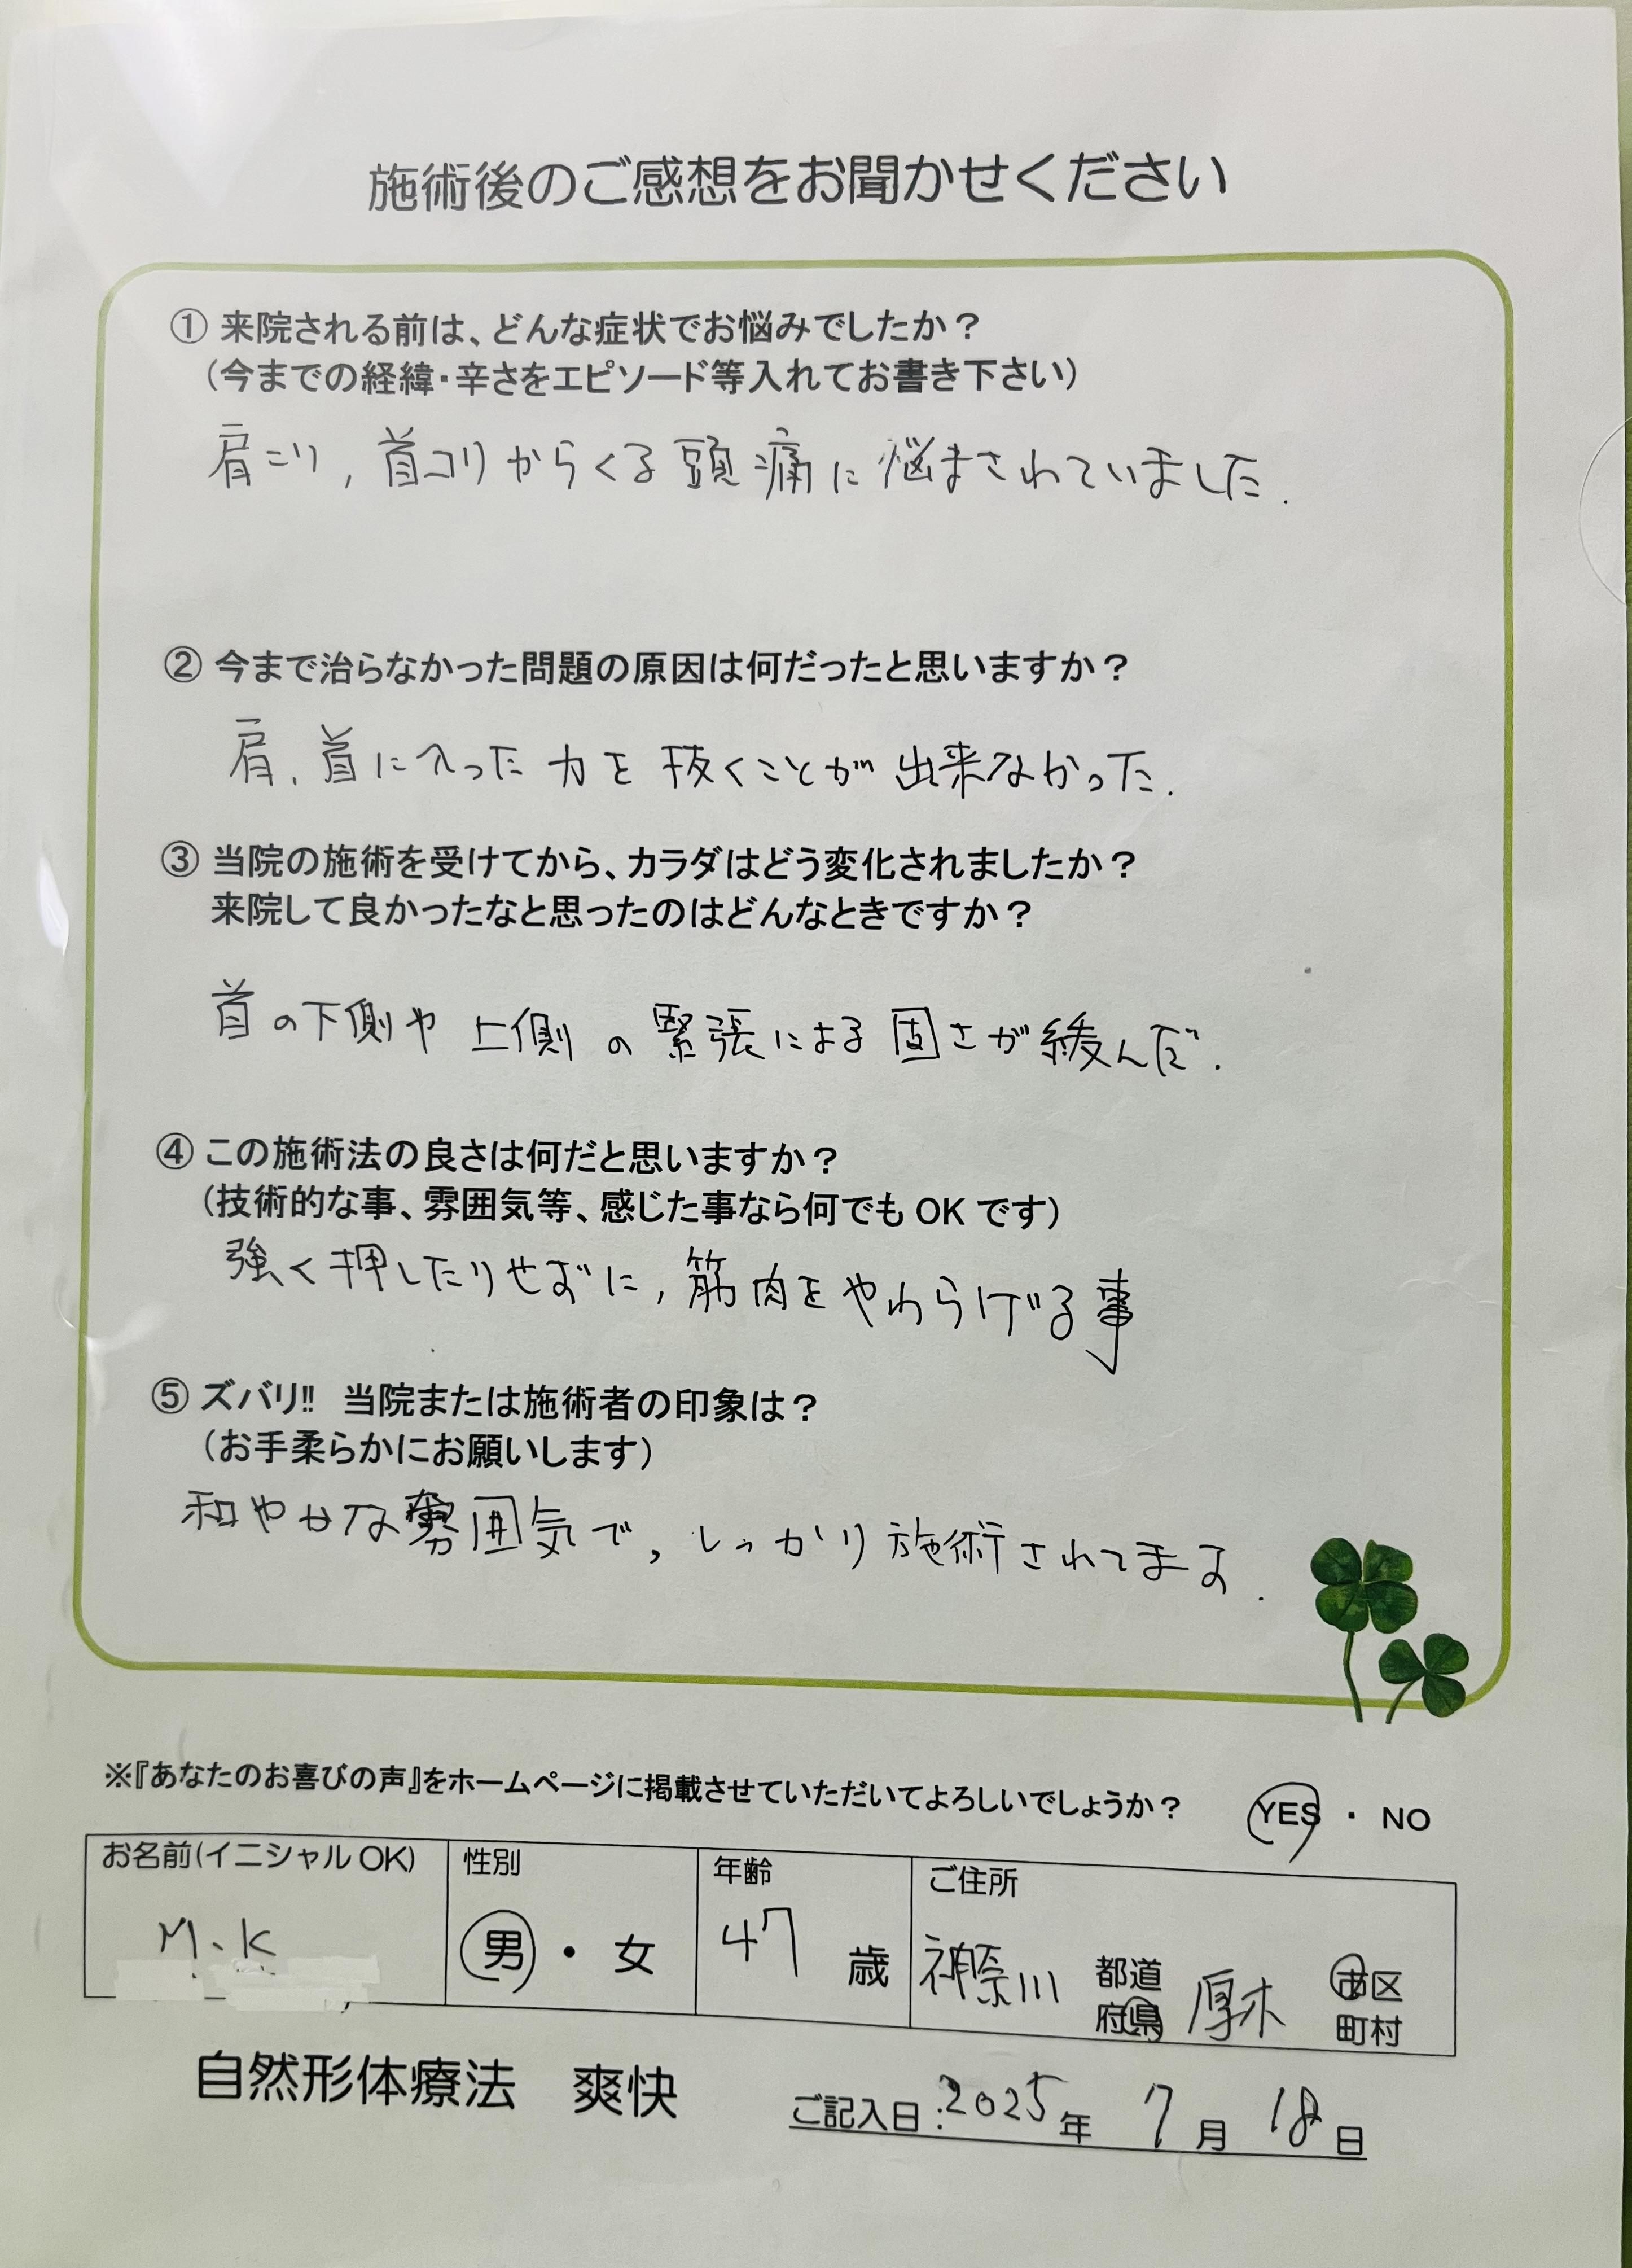 施術後のご感想をお聞かせください
① 来院される前は、どんな症状でお悩みでしたか？
（今までの経緯・辛さをエピソード等入れてお書き下さい）
肩こり，首コリからくる頭痛に悩まされていました．
② 今まで治らなかった問題の原因は何だったと思いますか？
肩，首に入った力を抜くことが出来なかった．
③ 当院の施術を受けてから、カラダはどう変化されましたか？
来院して良かったなと思ったのはどんなときですか？
首の下側や上側の緊張による固さが緩んだ．
④ この施術法の良さは何だと思いますか？
（技術的な事、雰囲気等、感じた事なら何でも OK です）
強く押したりせずに，筋肉をやわらげる事
⑤ ズバリ!! 当院または施術者の印象は？
（お手柔らかにお願いします）
和やかな雰囲気で，しっかり施術されてます．
※『あなたのお喜びの声』をホームページに掲載させていただいてよろしいでしょうか？ YES ・ NO
お名前(イニシャル OK) 性別 年齢 ご住所
M.K 男 ・ 女 47 歳 神奈川 都道府県 厚木 市区町村
自然形体療法 爽快 ご記入日：2025年 7月 18日